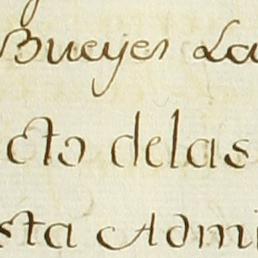 Bueyes La
cto delas
sta Admi